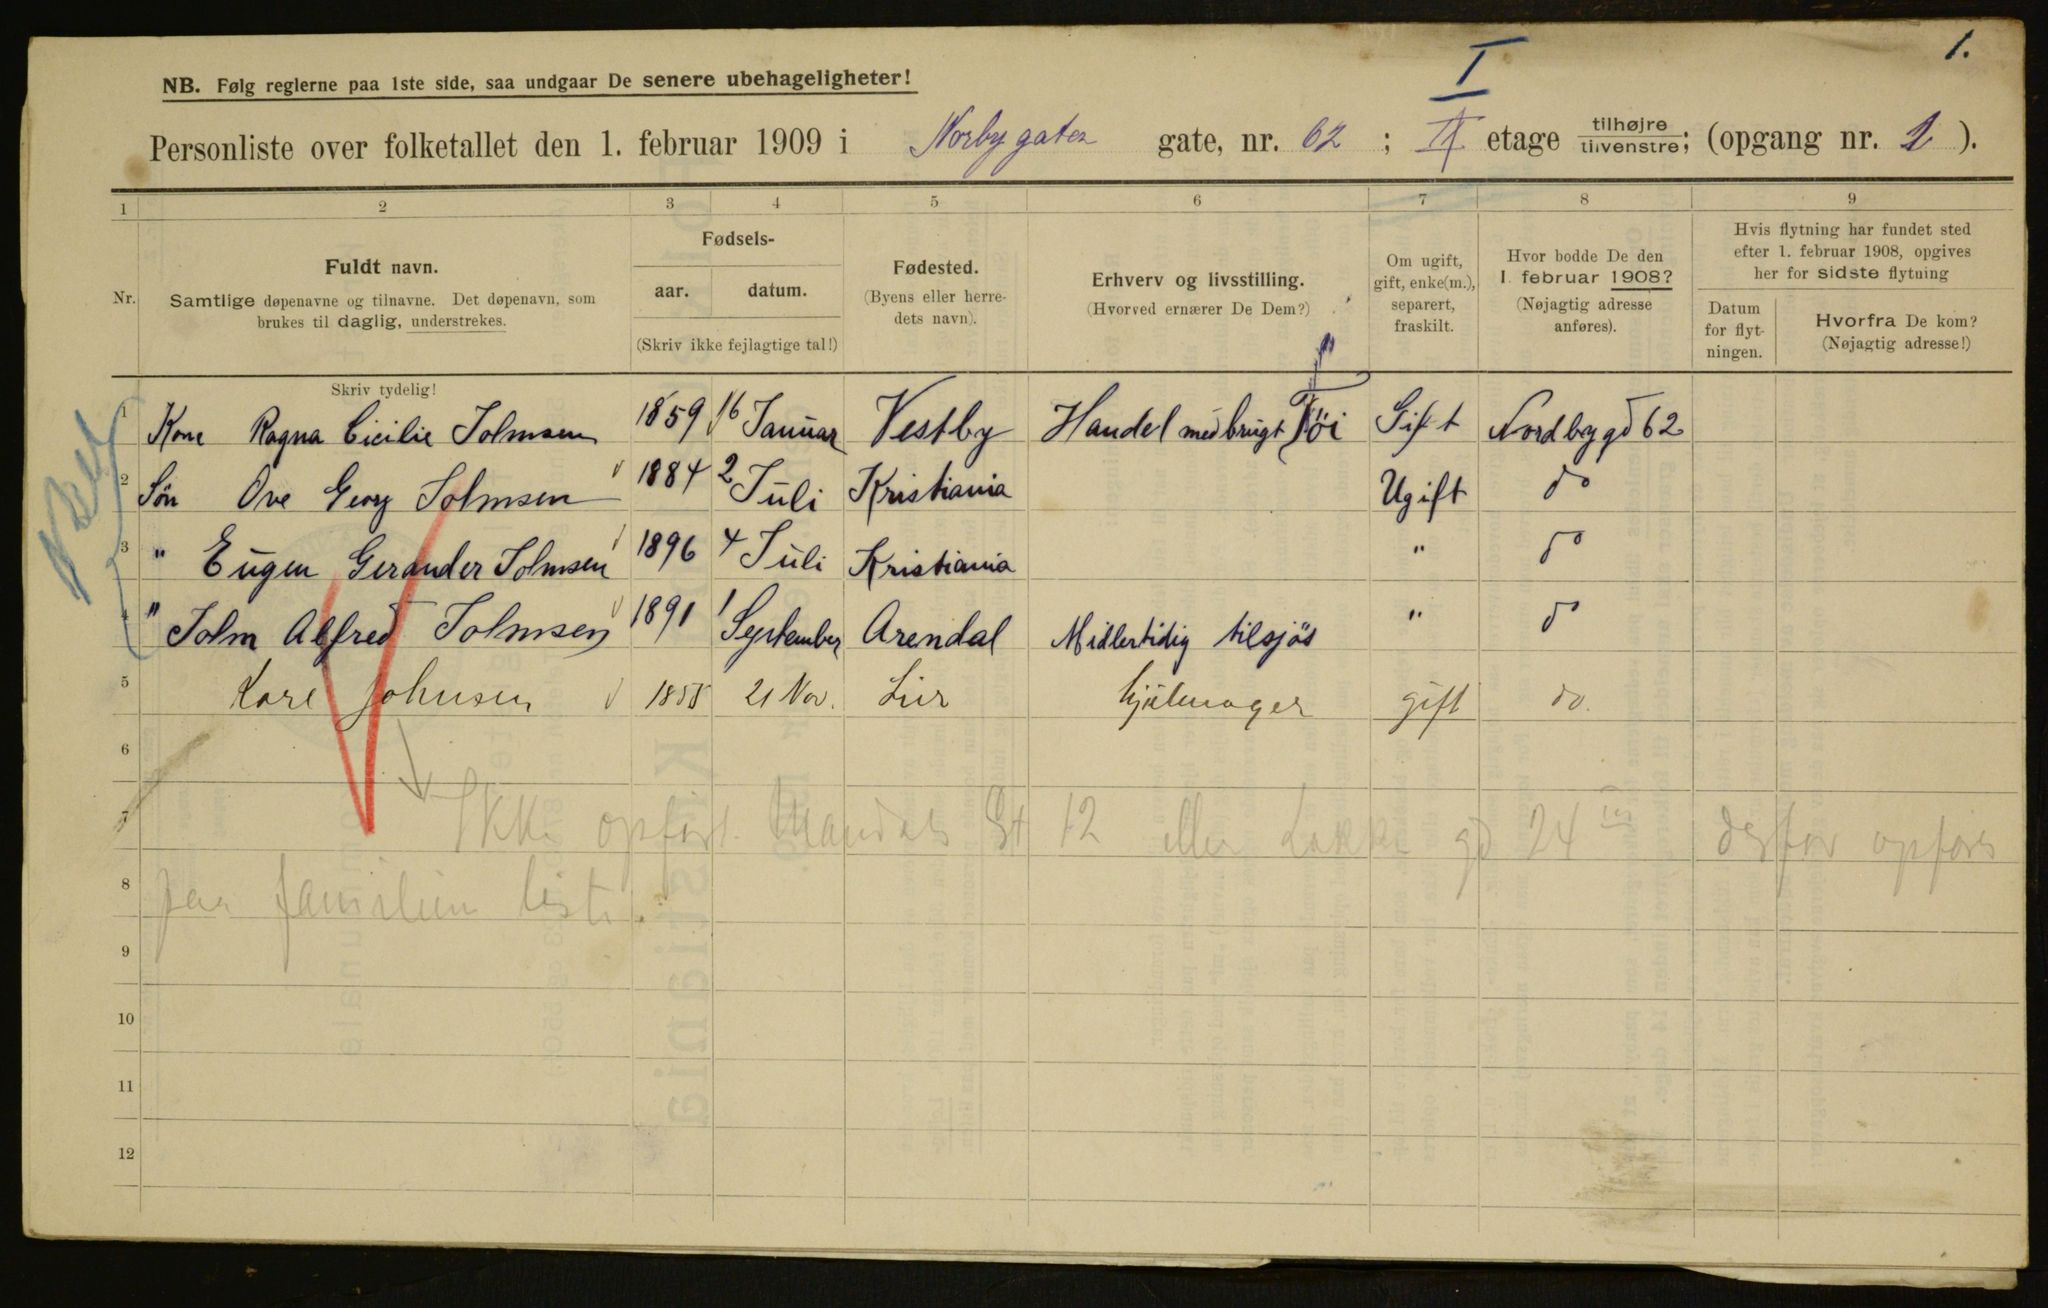 1.
I
NB. Følg reglerne paa 1ste side, saa undgaar De senere ubehageligheter!
Personliste over folketallet den 1. februar 1909 i Norbygaten gate, nr. 62 ; II etage tilhøjre tilvenstre; (opgang nr. 1 ).
1 2 3 4 5 6 7 8 9
Nr.
Fuldt navn.
Samtlige døpenavne og tilnavne. Det døpenavn, som
brukes til daglig, understrekes.
Skriv tydelig!
Fødsels-
aar. datum.
(Skriv ikke fejlagtige tal!)
Fødested.
(Byens eller herre-
dets navn).
Erhverv og livsstilling.
(Hvorved ernærer De Dem?)
Om ugift,
gift, enke(m.),
separert,
fraskilt.
Hvor bodde De den
1. februar 1908?
(Nøjagtig adresse
anføres).
Hvis flytning har fundet sted
efter 1. februar 1908, opgives
her for sidste flytning
Datum
for flyt-
ningen.
Hvorfra De kom?
(Nøjagtig adresse!)
1 Kone Ragna Cicilie Johnsen 1859 16 Januar Vestby Handel med brugt Töi Gift Nordbygd 62
2 Sön Ove Georg Johnsen 1884 2 Juli Kristiania Ugift do
3 " Eugen Gerander Johnsen 1896 4 Juli Kristiania " do
4 " John Alfred Johnsen 1891 1 September Arendal Midlertidig tilsjös " do
5 Kare Johnsen 1855 21 Nov. Lier hjulmager gift do.
6
7 Ikke opført Mandals Gt 12 eller Lakke gd 24 derfor opføres
8 paa familiens liste.
9
10
11
12